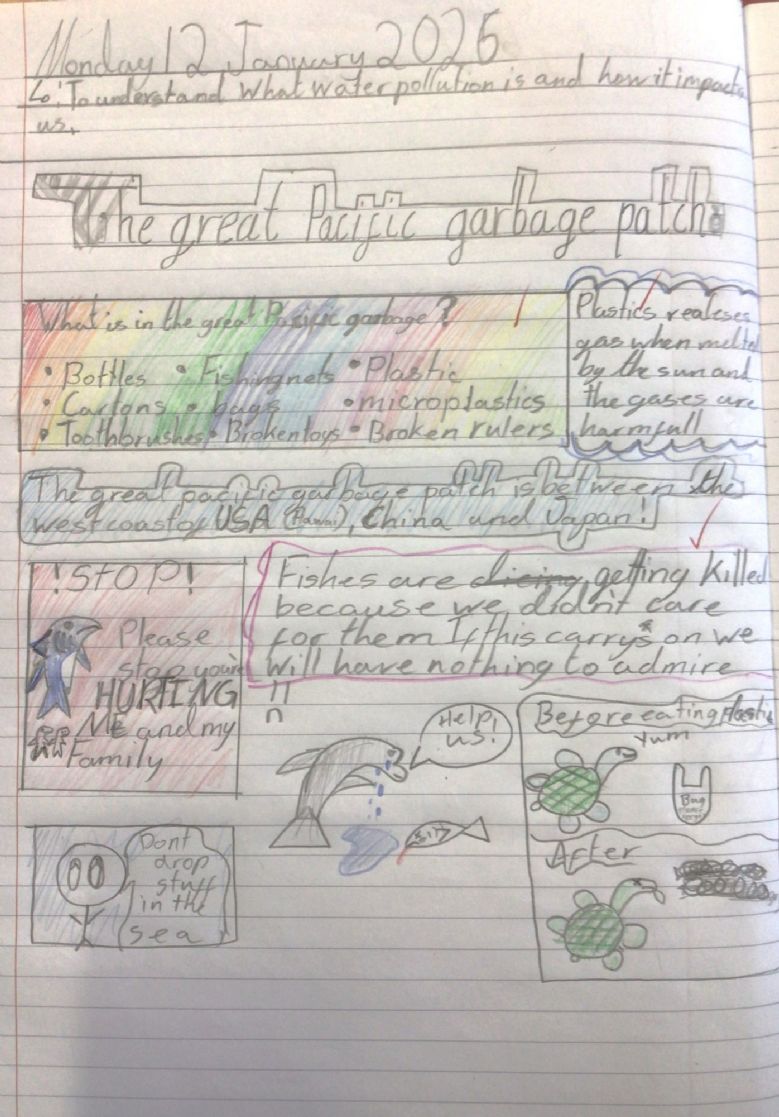 Monday 12 January 2026
Lo: To understand what water pollution is and how it impacts
us.
The great Pacific garbage patch
What is in the great Pacific garbage?
• Bottles • Fishingnets • Plastic
• Cartons • bags • microplastics
• Toothbrushes • Broken toys • Broken rulers
Plastics realeses
gas when melted
by the sun and
the gases are
harmfull
The great pacific garbage patch is between the
west coast of USA (Hawai), China and Japan!
!STOP!
Please
stop you're
HURTING
ME and my
Family
Fishes are dieing getting killed
because we didn't care
for them If this carrys on we
will have nothing to admire
!!
Help!
us!
Before eating Plastic
Yum
Bag
After
Dont
drop
stuff
in the
sea